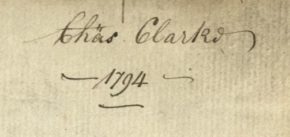 Chas. Clarke
1794